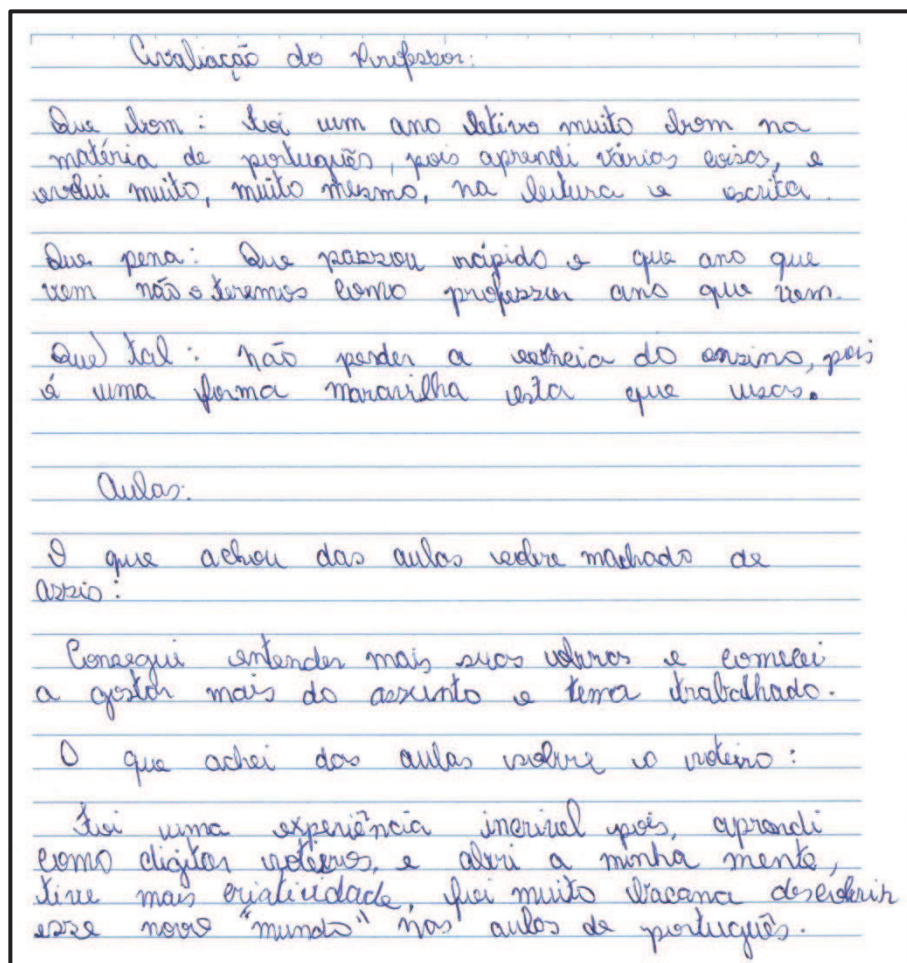 Avaliação do Professor:
Que bom: Foi um ano letivo muito bom na
matéria de português, pois aprendi várias coisas, e
evolui muito, muito mesmo, na leitura e escrita.
Que pena: Que passou rápido e que ano que
vem não o teremos como professor ano que vem.
Que tal: não perder a essência do ensino, pois
é uma forma maravilha esta que usas.
Aulas:
O que achou das aulas sobre machado de
assis:
Consegui entender mais suas obras e comecei
a gostar mais do assunto e tema trabalhado.
O que achei das aulas sobre o roteiro:
Foi uma experiência incrível pois, aprendi
como digitar roteiros, e abri a minha mente,
tive mais criatividade, foi muito bacana descobrir
esse novo "mundo" nas aulas de português.